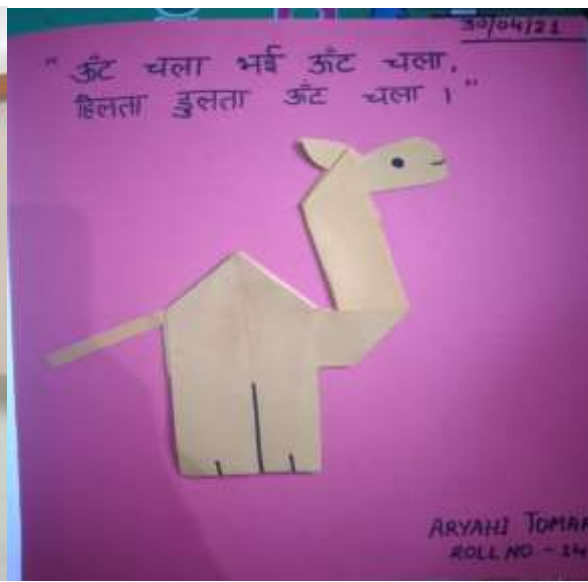 30/04/21
" ऊँट चला भई ऊँट चला,
हिलता डुलता ऊँट चला । "
ARYAHI TOMAR
ROLL NO - 14